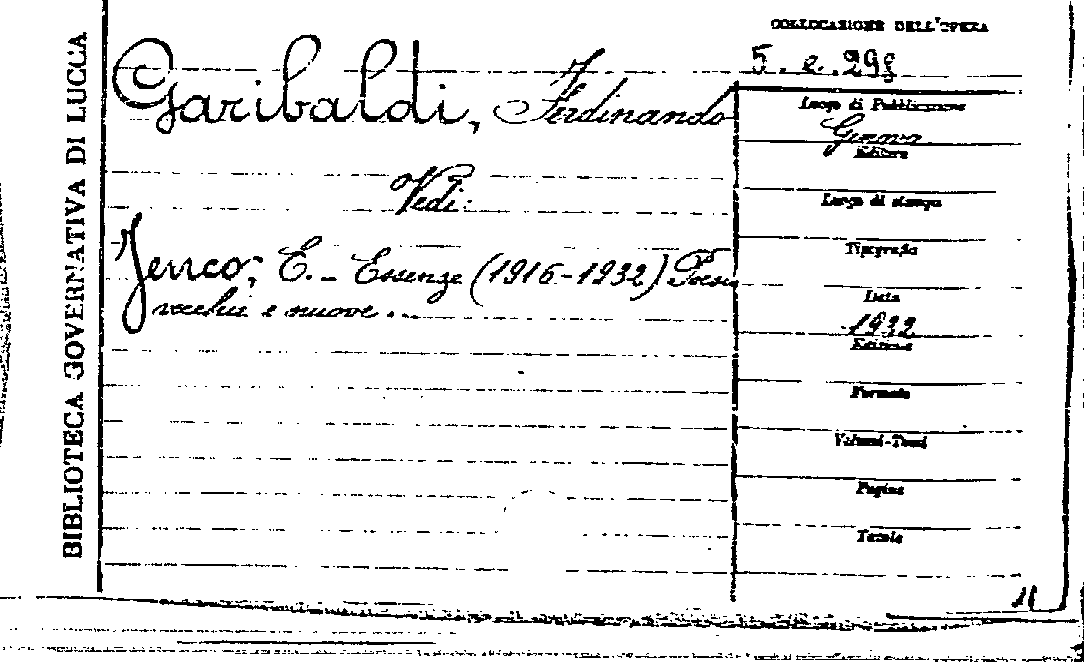 BIBLIOTECA GOVERNATIVA DI LUCCA
COLLOCAZIONE DELL'OPERA
5. e. 298
Garibaldi, Ferdinando
Luogo di Pubblicazione
Genova
Editore
Vedi:
Luogo di stampa
Tipografia
Jenco, E. - Essenze (1916-1932) Poesie
vecchie e nuove..
Data
1932
Edizione
Formato
Volumi-Tomi
Pagine
Tavole